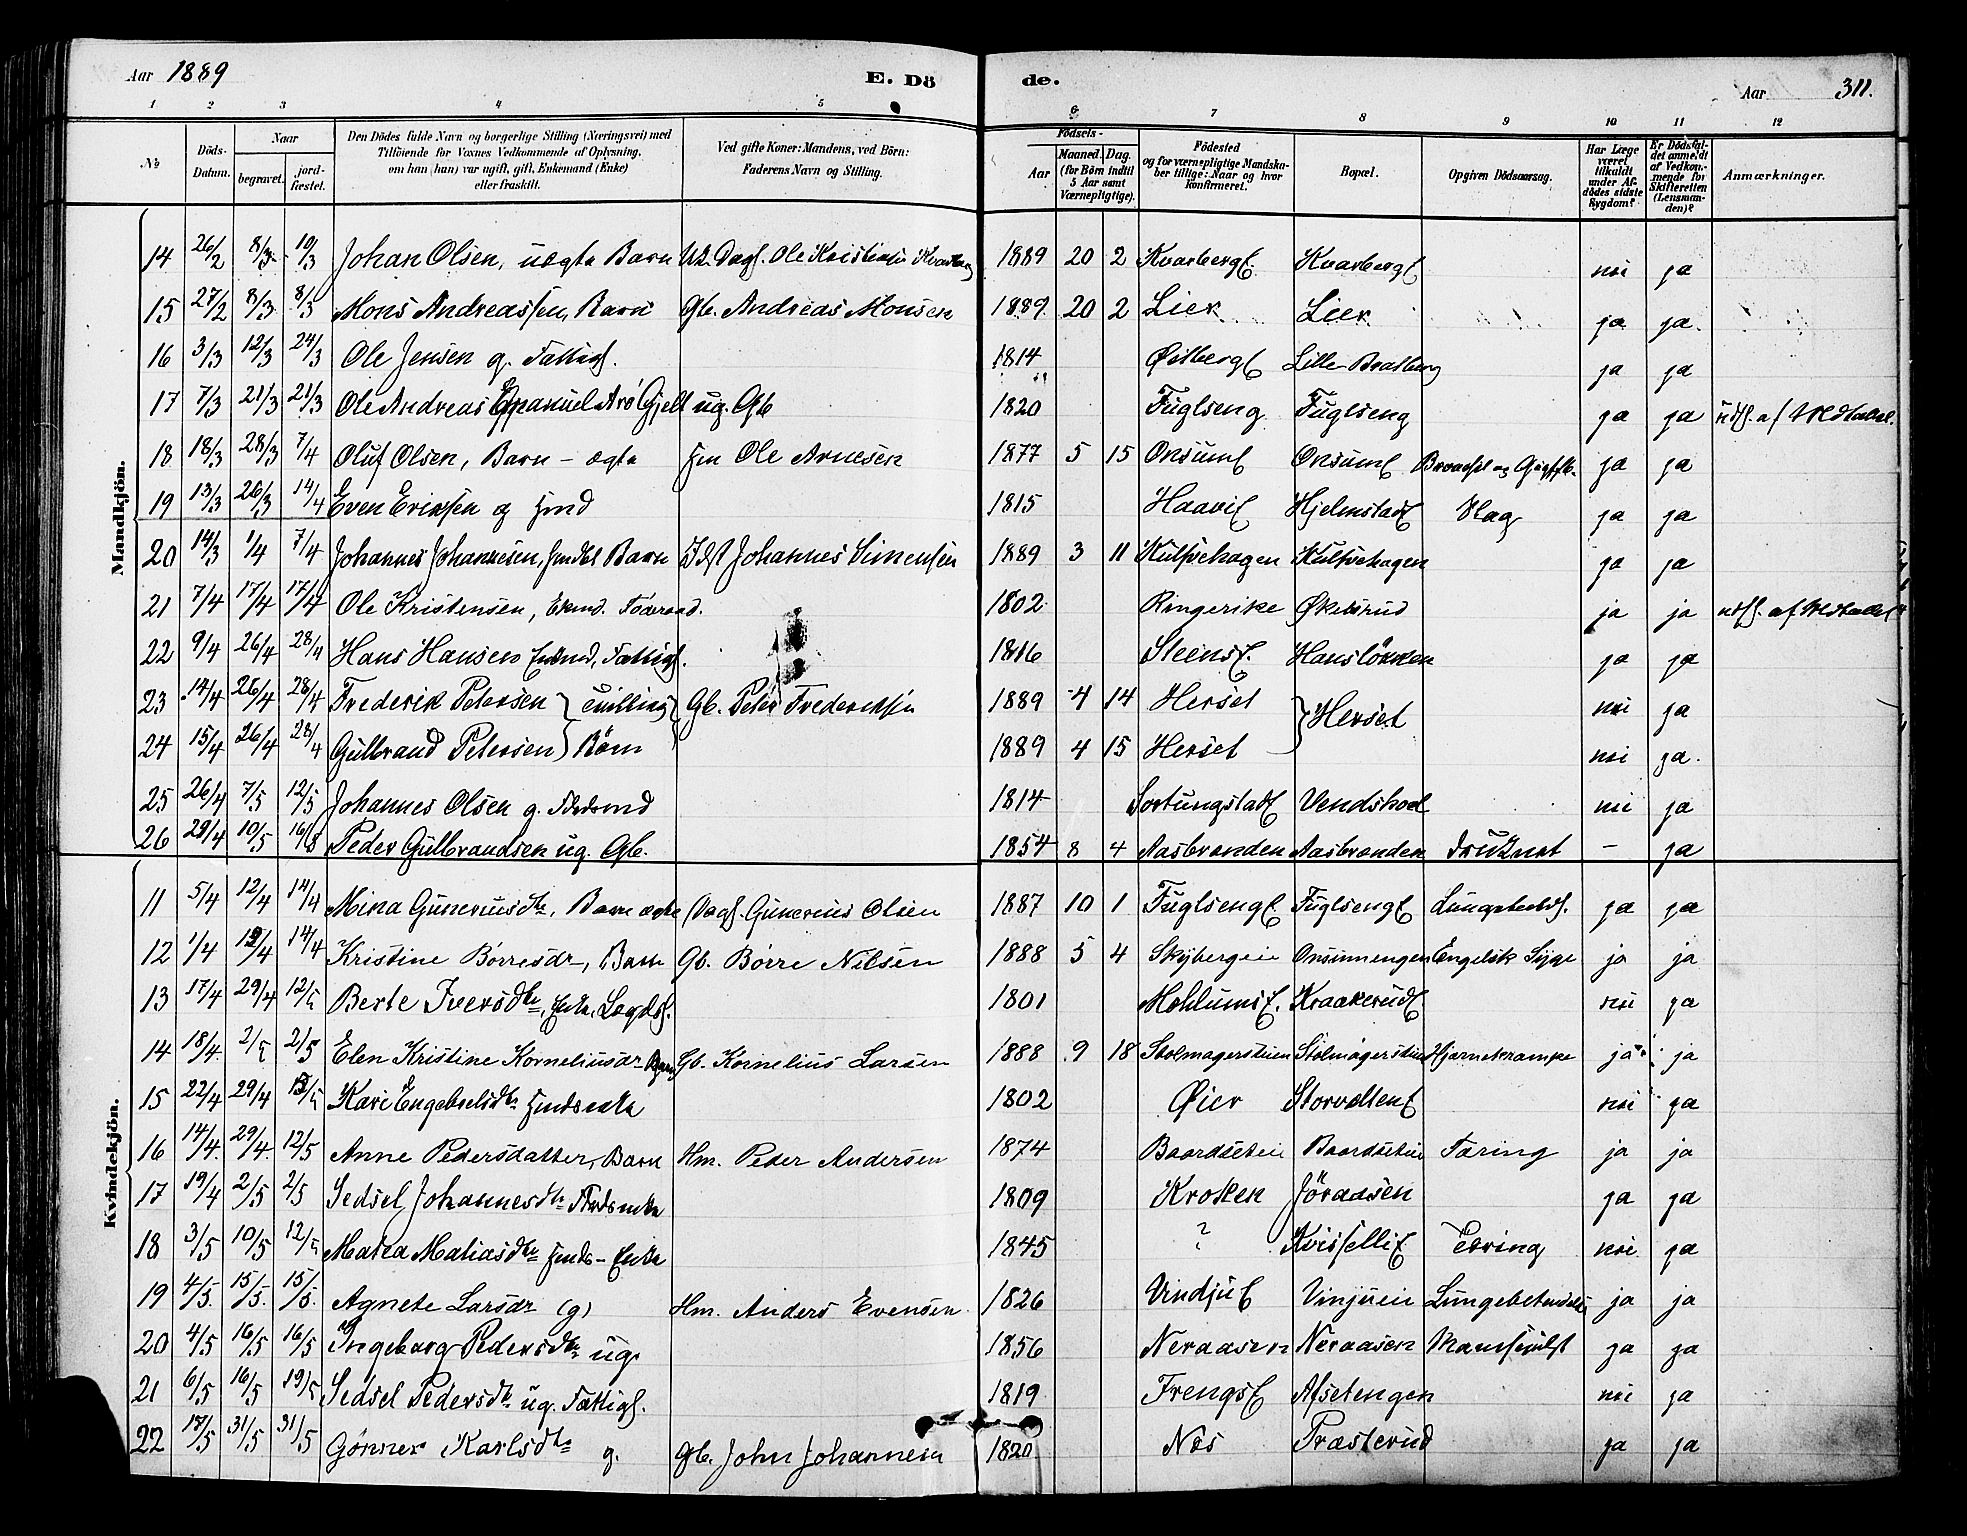 Aar 1889 E. Dö de. Aar 311.
1 2 3 4 5 6 7 8 9 10 11 12
No Döds-Datum. Naar begravet. jord-fæstet. Den Dödes fulde Navn og borgerlige Stilling (Næringsvei) med Tilföiende for Voxnes Vedkommende af Oplysning, om han (hun) var ugift, gift, Enkemand (Enke) eller fraskilt. Ved gifte Koner: Mandens, ved Börn: Faderens Navn og Stilling. Födsels- Aar Maaned. Dag. (for Börn indtil 5 Aar samt Værnepligtige). Födested og for værnepligtige Mandskaber tillige: Naar og hvor konfirmeret. Bopæl. Opgiven Dödsaarsag. Har Læge været tilkaldt under Afdödes sidste Sygdom? Er Dödsfaldet anmeldt af Vedkommende for Skifteretten (Lensmanden)? Anmærkninger.
Mandkjön.
14 26/2 8/3 10/3 Johan Olsen, uægte Barn Dagl. Ole Kristiansen 1889 20 2 Kvarberge Kvarberge nei ja
15 27/2 8/3 8/3 Mons Andreassen, Barn Gb. Andreas Monsen 1889 20 2 Lier Lier ja ja
16 3/3 12/3 24/3 Ole Jensen g. Fattigl. 1814 Lille ja ja
17 7/3 21/3 21/3 Ole Andreas Emanuel ug. Gb 1820 Fuglseng Fuglseng ja ja
18 18/3 28/3 7/4 Oluf Olsen, Barn - ægte Ole Arnesen 1877 5 15 Onsume Onsume ja ja
19 13/3 26/3 14/4 Even Eriksen g 1815 Haavie Hjelmstade Slag ja ja
20 14/3 1/4 7/4 Johannes Johannesen, Barn Johannes Simensen 1889 3 11 ja ja
21 7/4 17/4 17/4 Ole Kristensen, Ekmd. Föderaad. 1802 Ringerike Økelsrud ja ja
22 9/4 26/4 28/4 Hans Hansen Fattigl. 1816 Steense. Hanslökken ja ja
23 14/4 26/4 28/4 Frederik Petersen tvilling Gb. Peter Frederiksen 1889 4 14 Herset Herset nei ja
24 15/4 26/4 28/4 Gulbrand Petersen Börn 1889 4 15 Herset nei ja.
25 26/4 7/5 12/5 Johannes Olsen g. 1814 Vendshoel nei ja
26 29/4 10/5 Peder Gulbrandsen ug. Gb. 1854 8 4 Aasbrænden Aasbrænden Druknet - ja
Kvindekjön.
11 5/4 12/4 14/4 Mina Guneriusdtr, Barn ægte Dagl. Gunerius Olsen 1887 10 1 Fuglsenge Fuglsenge ja ja
12 1/4 12/4 14/4 Kristine Börresdr, Barn Gb. Börre Nilsen 1888 5 4 Skybergeie Onsumengen Engelsk Syge ja ja
13 17/4 29/4 12/5 Berte Iversdtr, Enke, Lægdsl. 1801 Mohlumse. Kraakerude nei ja
14 18/4 2/5 2/5 Elen Kristine Korneliusdr Barn Gb. Kornelius Larsen 1888 9 18 Stolmagerstuen Stolmagerstuen Hjernekrampe ja ja
15 22/4 29/4 Kari Engebretsdtr 1802 Øier Storveltene nei ja
16 14/4 29/4 12/5 Anne Pedersdatter, Barn Hm. Peder Andersen 1874 Baardseteie Baardseteie Tæring ja ja
17 19/4 2/5 2/5 Sedsel Johannesdtr 1809 Kroken Jöraasen ja ja
18 3/5 10/5 12/5 Maria Matiasdtr Enke 1845 ? Tæring nei ja
19 4/5 15/5 15/5 Agnete Larsdr (g) Hm. Anders Evensen 1826 Vindjue Vinjueie Lungebetændelse ja ja
20 4/5 16/5 16/5 Ingeborg Pedersdtr ug. 1856 Neraasen Neraasen ja ja
21 6/5 16/5 19/5 Sedsel Pedersdtr ug. Fattigl. 1819 Frengse Alsetengen nei ja
22 18/5 31/5 31/5 Gönner Karlsdtr g. Gb. John Johannesen 1820 Nes Præsterud ja ja